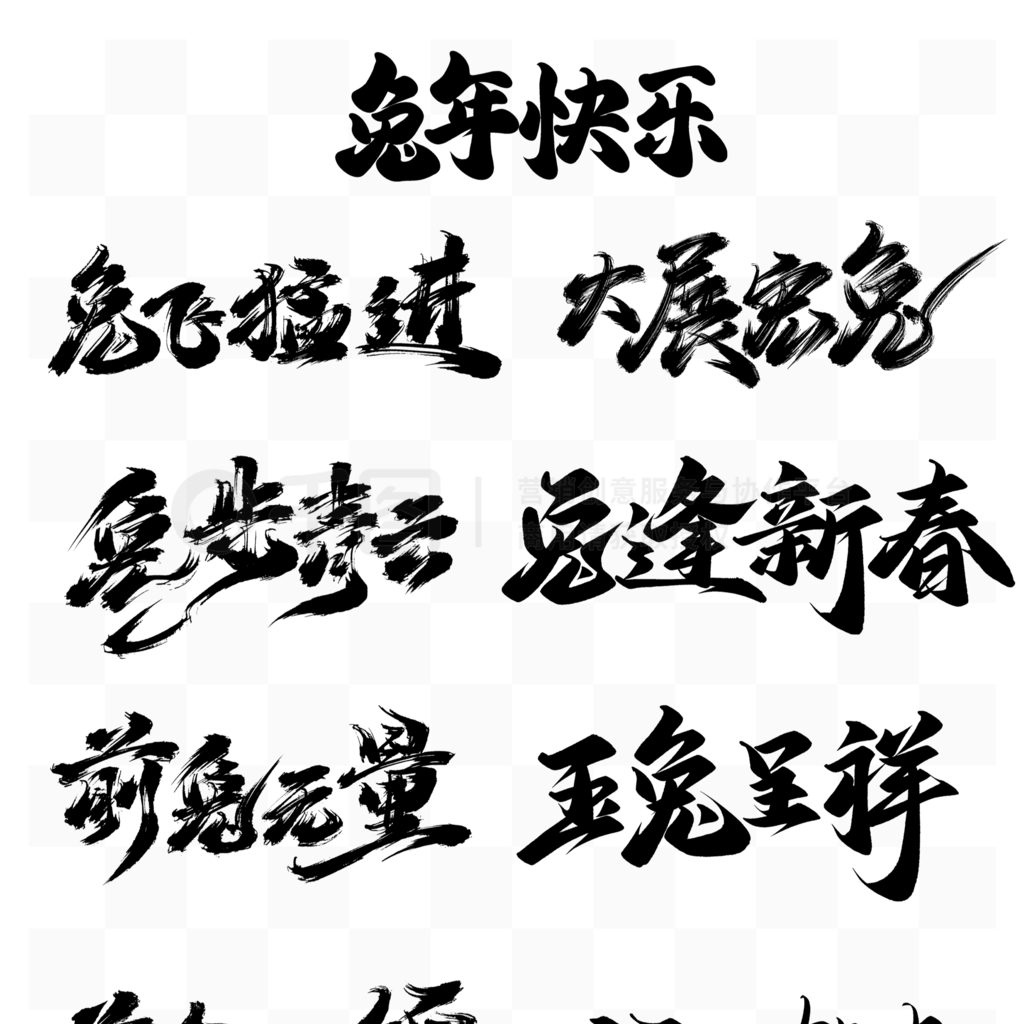 兔年快乐
兔飞猛进 大展宏兔
兔步青云 兔逢新春
前兔无量 玉兔呈祥